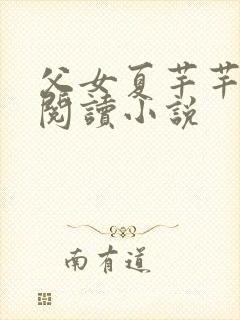 父女夏芊芊
閱讀小說
南有道